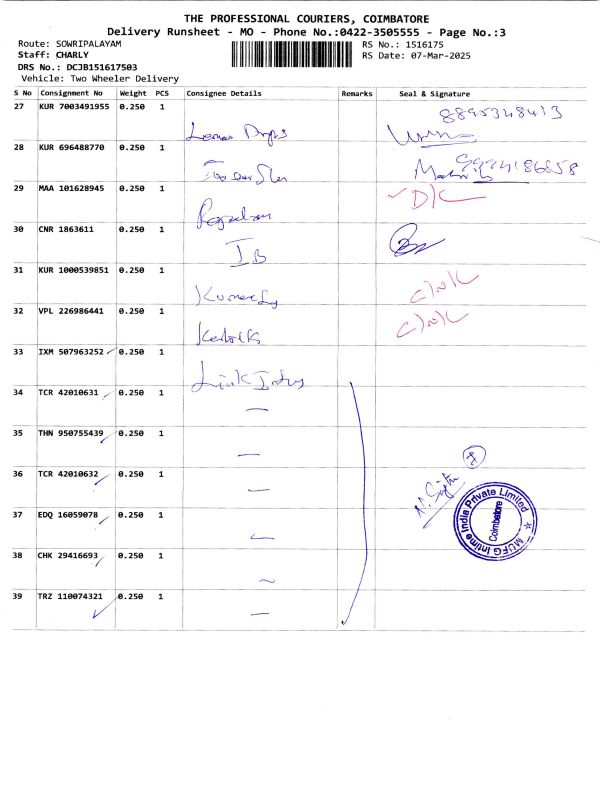 THE PROFESSIONAL COURIERS, COIMBATORE
Delivery Runsheet - MO - Phone No.:0422-3505555 - Page No.:3
Route: SOWRIPALAYAM RS No.: 1516175
Staff: CHARLY RS Date: 07-Mar-2025
DRS No.: DCJB151617503
Vehicle: Two Wheeler Delivery
S No Consignment No Weight PCS Consignee Details Remarks Seal & Signature
27 KUR 7003491955 0.250 1
8895348413
28 KUR 696488770 0.250 1
9994186858
29 MAA 101628945 0.250 1 D/C
30 CNR 1863611 0.250 1
IB
31 KUR 1000539851 0.250 1 C/N/C
32 VPL 226986441 0.250 1 C/N/C
33 IXM 507963252 0.250 1
Link Indus
34 TCR 42010631 0.250 1
35 THN 950755439 0.250 1
8
36 TCR 42010632 0.250 1
37 EDQ 16059078 0.250 1
MUFG Intime India Private Limited
Coimbatore
38 CHK 29416693 0.250 1
39 TRZ 110074321 0.250 1